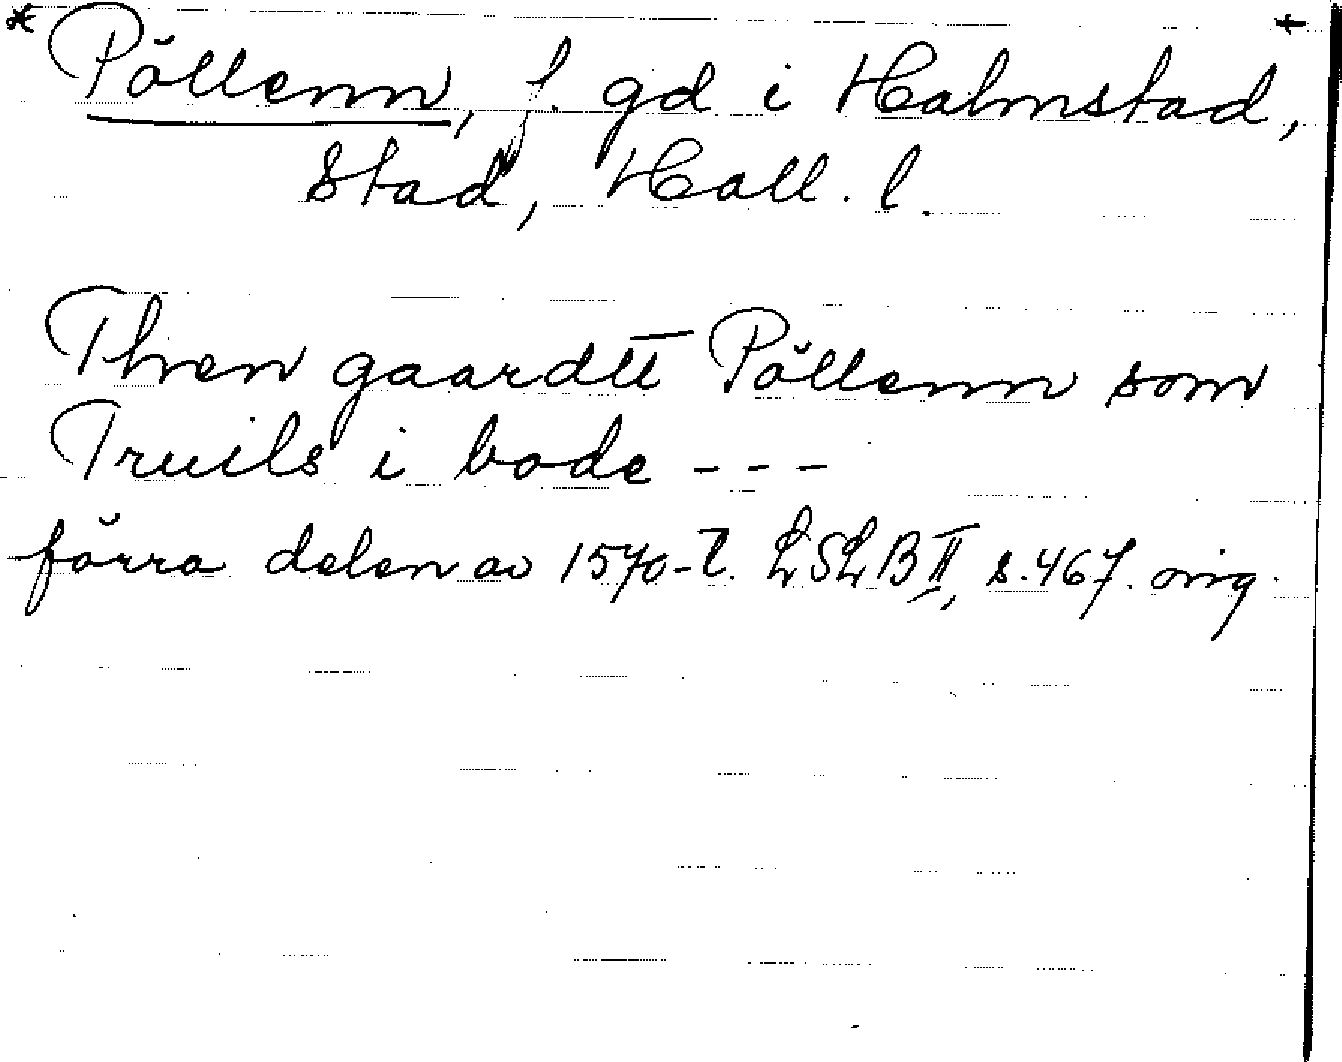 * Pöllenn, f. gd i Halmstad, +
stad, Hall. l.
Then gaardtt Pöllenn som
Truils i bode - - -
förra delen av 1570-t. LSLB II, s. 467. orig.